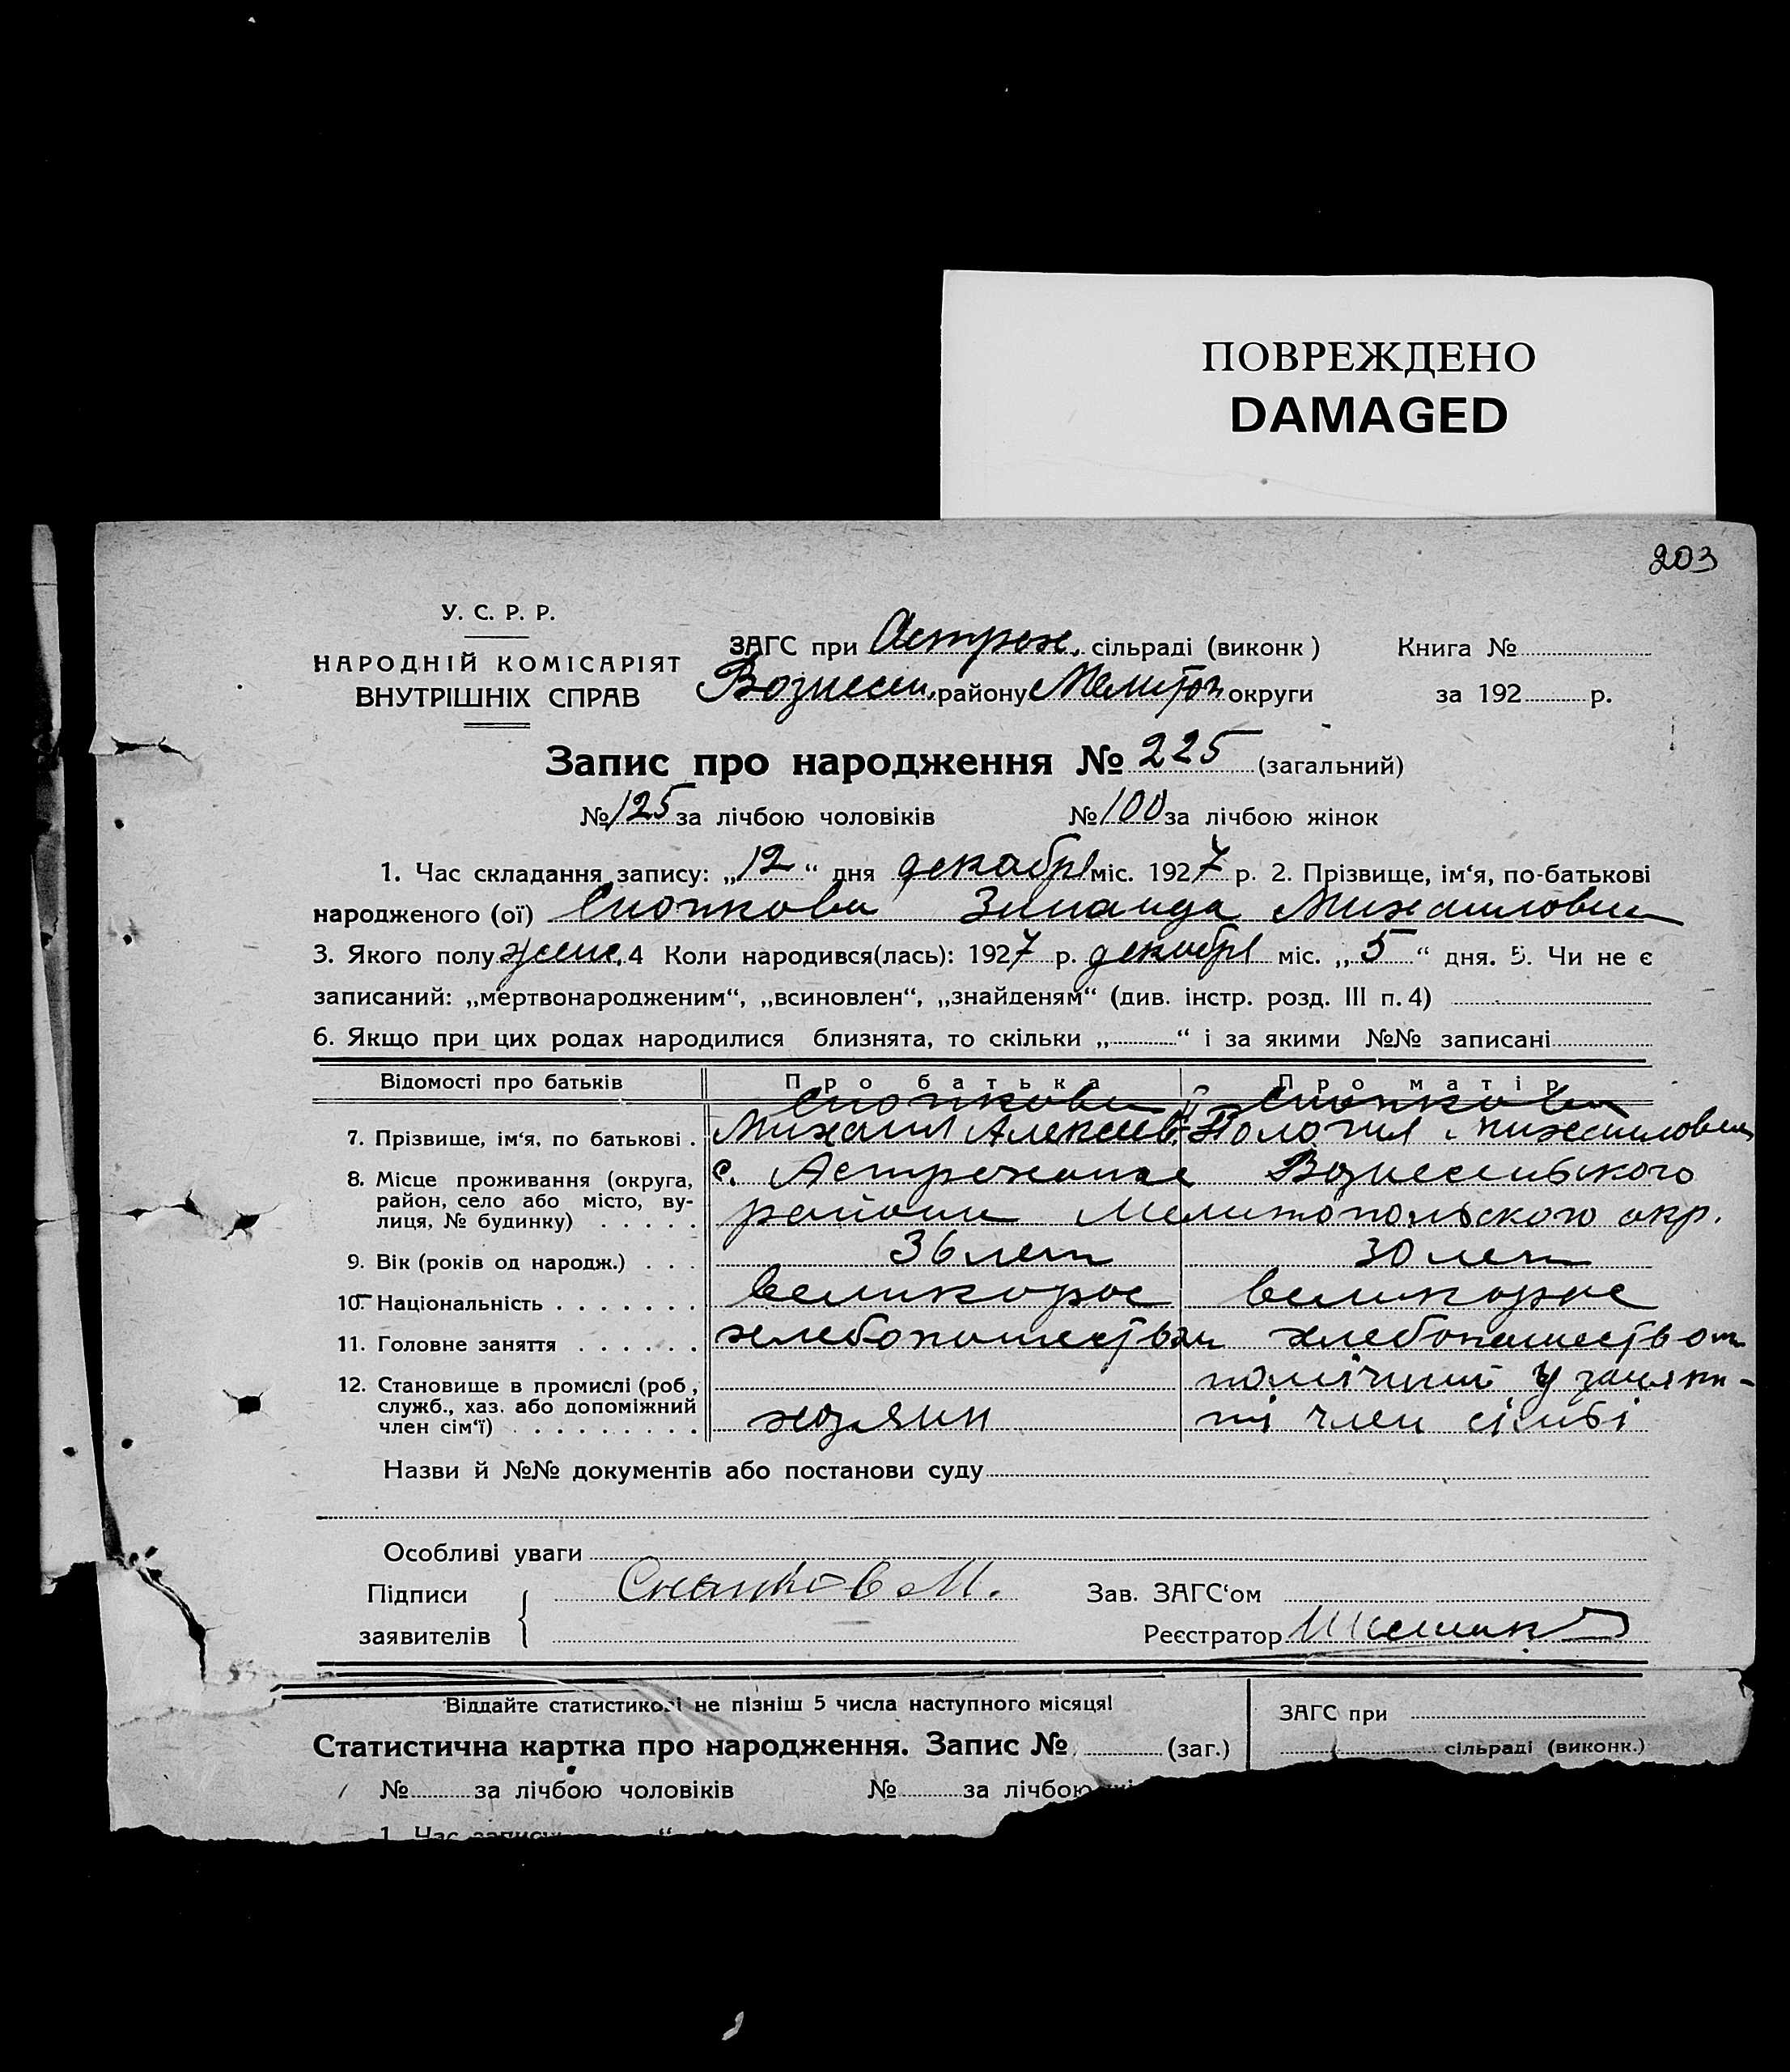 ПОВРЕЖДЕНО
DAMAGED
203
У. С. Р. Р.
НАРОДНІЙ КОМІСАРІЯТ
ВНУТРІШНІХ СПРАВ
ЗАГС при Астрах. сільраді (виконк)
Вознесен. району Мелитоп округи
Книга №
за 192 р.
Запис про народження № 225 (загальний)
№ 125 за лічбою чоловіків № 100 за лічбою жінок
1. Час складання запису: „12“ дня декабря міс. 1927 р. 2. Прізвище, ім‘я, по-батькові
народженого (ої) Зинаида Михайловна
3. Якого полу жен. 4 Коли народився(лась): 1927 р. декабря міс. „5“ дня. 5. Чи не є
записаний: „мертвонародженим“, „всиновлен“, „знайденям“ (див. інстр. розд. III п. 4)
6. Якщо при цих родах народилися близнята, то скільки „ “ і за якими №№ записані
Відомості про батьків Про батька Про матір
7. Прізвище, ім‘я, по батькові . Михаил Алексеев. Михайловна
8. Місце проживання (округа, с. Астраханке Вознесенського
район, село або місто, ву-
лиця, № будинку) . . . . . района Мелитопольского окр.
9. Вік (років од народж.) . . . 36 лет 30 лет
10. Національність . . . . . . . великорос великорос
11. Головне заняття . . . . . . хлебопашеством хлебопашеством
12. Становище в промислі (роб., помічний у занят-
служб., хаз. або допоміжний хозяин ті член сімьі
член сім‘ї) . . . . . . . . .
Назви й №№ документів або постанови суду
Особливі уваги
Підписи
заявителів
Зав. ЗАГС‘ом
Реєстратор
Віддайте статистикові не пізніш 5 числа наступного місяця!
Статистична картка про народження. Запис № (заг.)
№ за лічбою чоловіків № за лічбою
ЗАГС при
сільраді (виконк.)
1. Час запису